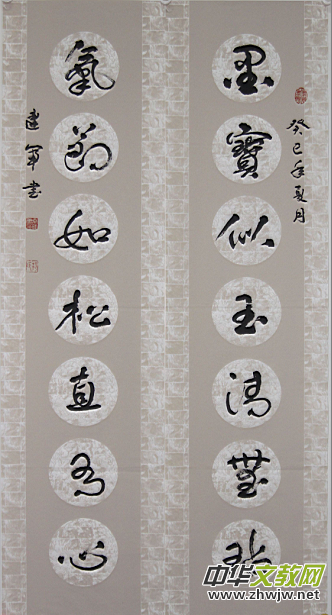 癸巳年夏月
墨寶似玉清無
氣節如松直心
建軍書
中华文教网
www.zhwjw.net